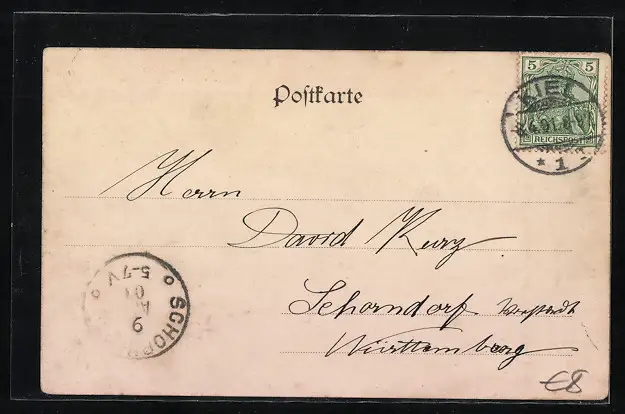 Postkarte
5 5
REICHSPOST
KIEL
* 1
Herrn
David Kurz
Schorndorf Vorstadt
Württemberg
SCHOR
9
01
5-7V
€8